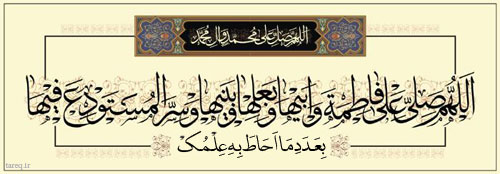 اللهم صل علی محمد وآل محمد
اَللّهُمَّ صَلِّ عَلی فاطِمَةَ وَ اَبیها وَ بَعلِها وَ بَنیها وَ سِرِّ المُستَودَعِ فیها
بِعَدَدِ مَا اَحَاطَ بِهِ عِلمُکَ
tareq.ir